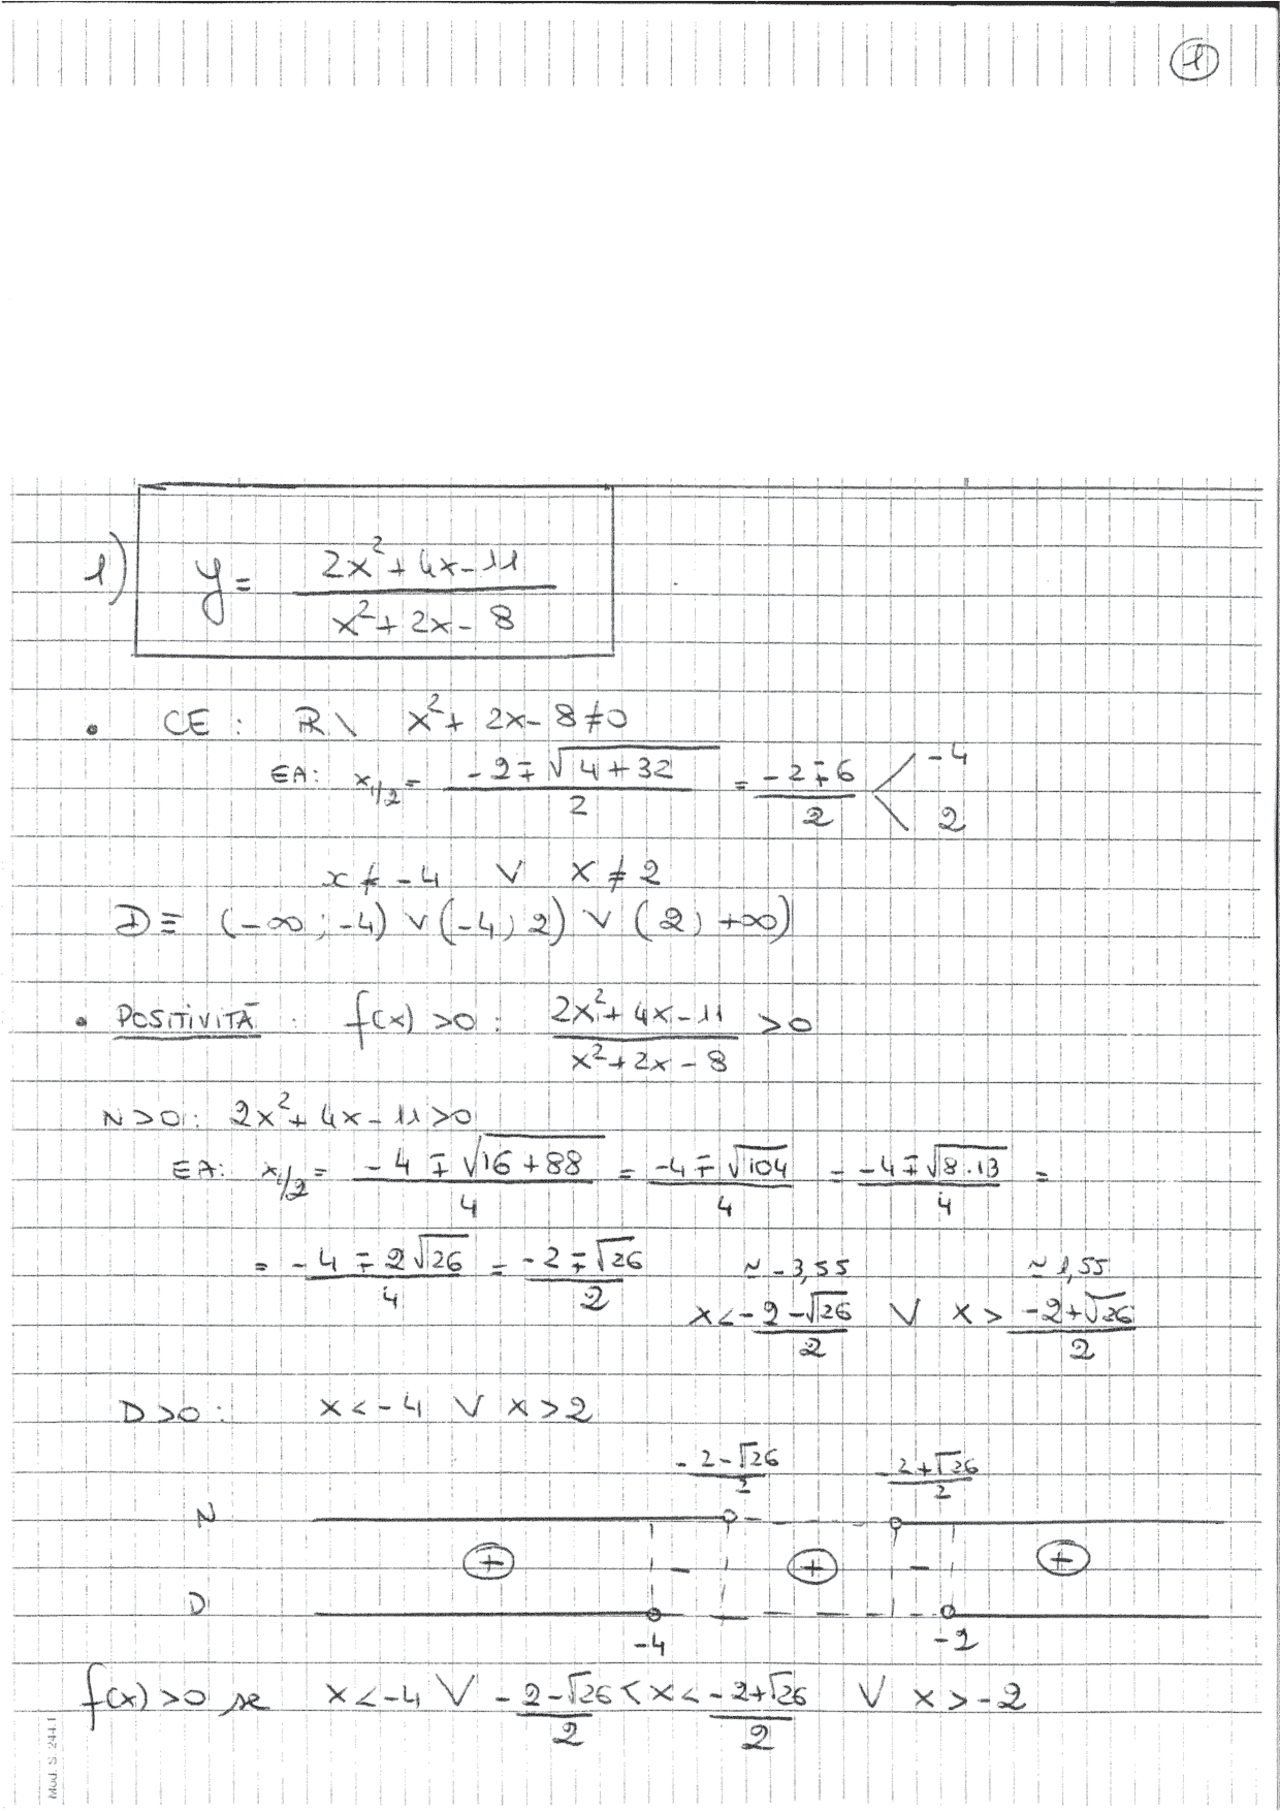 1
1) y = (2x² + 4x - 11) / (x² + 2x - 8)
• CE : R \ x² + 2x - 8 ≠ 0
EA: x₁/₂ = (-2 ∓ √(4+32)) / 2 = (-2 ∓ 6) / 2 < -4 2
x ≠ -4 ∨ x ≠ 2
D ≡ (-∞; -4) ∨ (-4; 2) ∨ (2; +∞)
• POSITIVITÀ : f(x) > 0 : (2x² + 4x - 11) / (x² + 2x - 8) > 0
N > 0 : 2x² + 4x - 11 > 0
EA: x₁/₂ = (-4 ∓ √(16+88)) / 4 = (-4 ∓ √104) / 4 = (-4 ∓ √(8·13)) / 4 =
= (-4 ∓ 2√26) / 4 = (-2 ∓ √26) / 2
≈ -3,55 ≈ 1,55
x < (-2-√26) / 2 ∨ x > (-2+√26) / 2
D > 0 : x < -4 ∨ x > 2
(-2-√26) / 2 (-2+√26) / 2
N
+ - + - +
D
-4 -2
f(x) > 0 se x < -4 ∨ (-2-√26) / 2 < x < (-2+√26) / 2 ∨ x > -2
Mod. S. 244.1